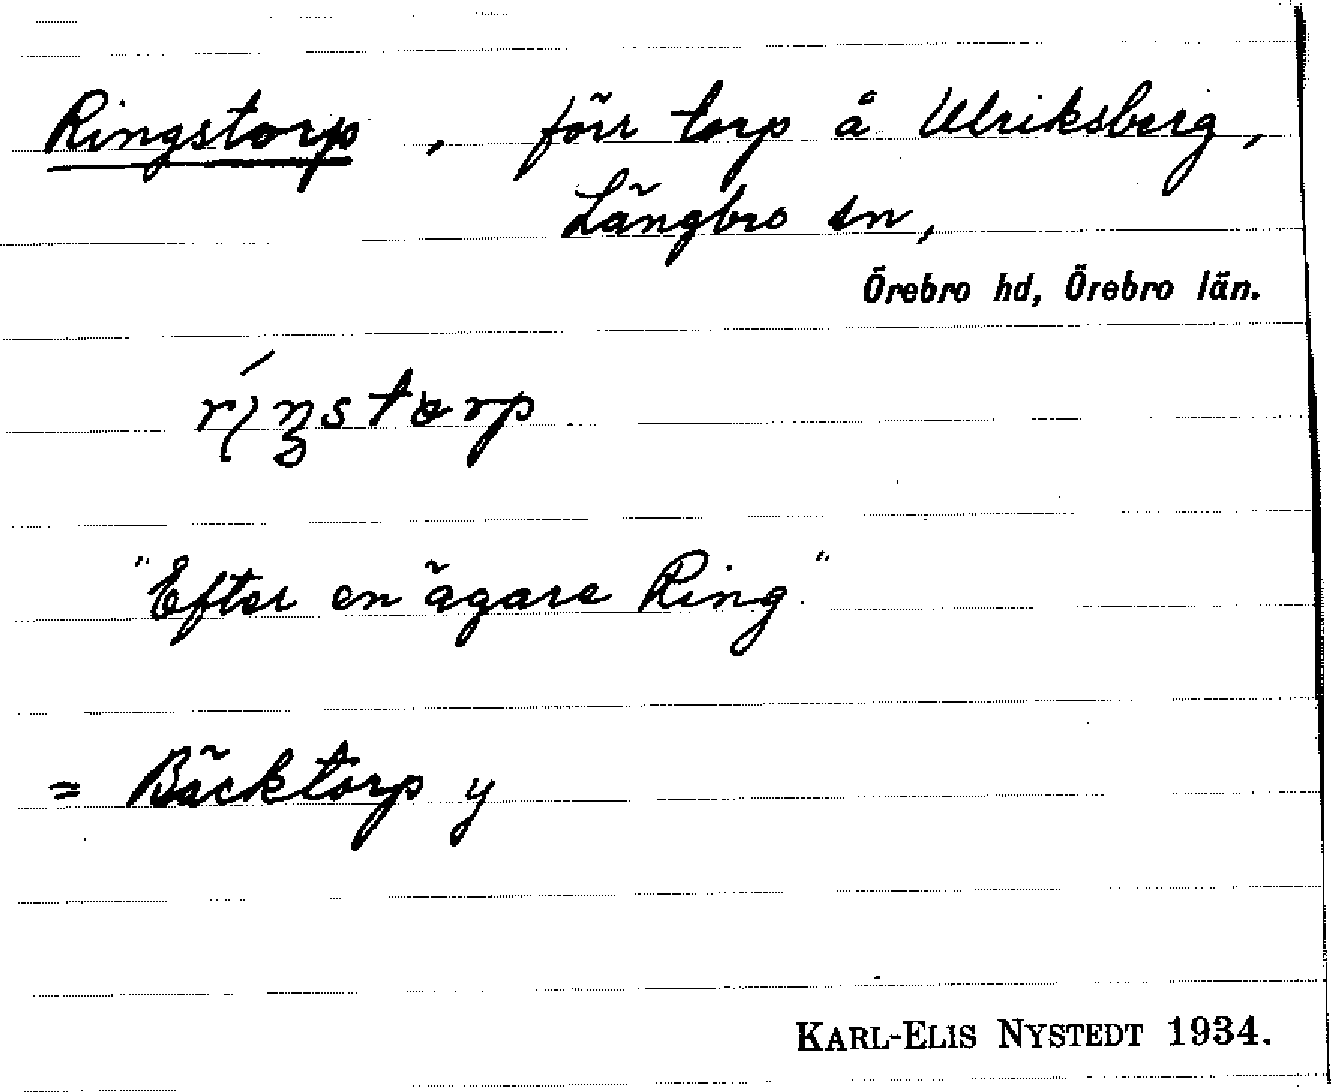 Ringstorp, förr torp å Ulriksberg,
Längbro sn,
Örebro hd, Örebro län.
"Efter en ägare Ring."
= Bäcktorp y
KARL-ELIS NYSTEDT 1934.